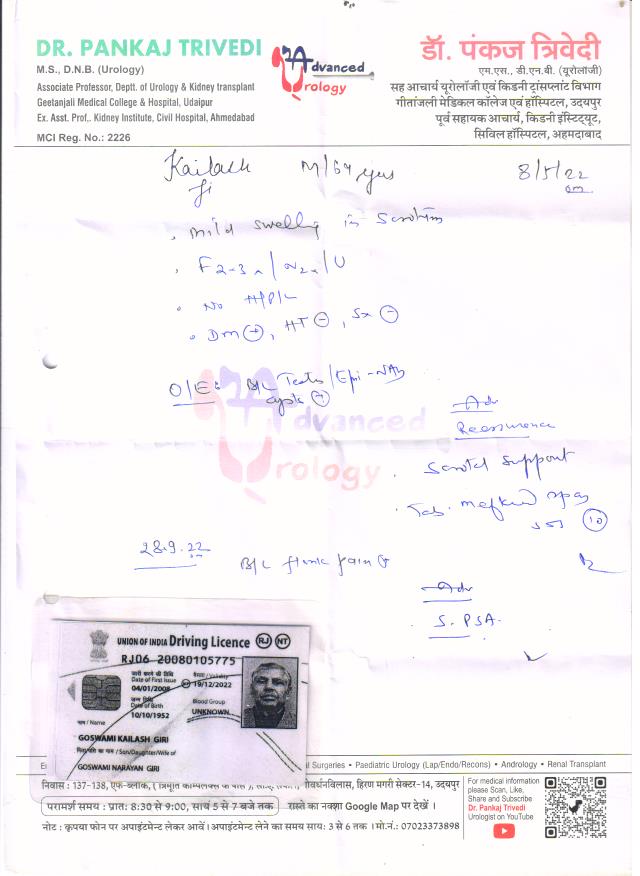 DR. PANKAJ TRIVEDI
M.S., D.N.B. (Urology)
Associate Professor, Deptt. of Urology & Kidney transplant
Geetanjali Medical College & Hospital, Udaipur
Ex. Asst. Prof., Kidney Institute, Civil Hospital, Ahmedabad
MCI Reg. No.: 2226
Advanced
Urology
डॉ. पंकज त्रिवेदी
एम.एस., डी.एन.बी. (यूरोलॉजी)
सह आचार्य यूरोलॉजी एवं किडनी ट्रांसप्लांट विभाग
गीतांजली मेडिकल कॉलेज एवं हॉस्पिटल, उदयपुर
पूर्व सहायक आचार्य, किडनी इंस्टिट्यूट,
सिविल हॉस्पिटल, अहमदाबाद
Kailash Ji M/64 yrs 8/5/22
mild swelling in Scrotum
F 2-3 / N 2 / U
No H/P/L
Dm +, HT -, Sx -
O/E: B/L Testes/Epi - NAD
cysts +
Advanced
Urology
Adv
Reassurance
Scrotal Support
Tab. Mefkind spas
10
28.9.22
B/L flank pain +
Adv
S. PSA.
UNION OF INDIA Driving Licence RJ NT
RJ06 20080105775
जारी करने की तिथि
Date of First Issue
04/01/2008
वैधता / Validity
19/12/2022
जन्म तिथि
Date of Birth
10/10/1952
Blood Group
UNKNOWN
नाम / Name
GOSWAMI KAILASH GIRI
/Son/Daughter/Wife of
GOSWAMI NARAYAN GIRI
Surgeries • Paediatric Urology (Lap/Endo/Recons) • Andrology • Renal Transplant
निवास : 137-138, एफ-ब्लॉक, गोवर्धनविलास, हिरण मगरी सेक्टर-14, उदयपुर
परामर्श समय : प्रात: 8:30 से 9:00, सायं 5 से 7 बजे तक रास्ते का नक्शा Google Map पर देखें ।
नोट : कृपया फोन पर अपाइंटमेन्ट लेकर आवें । अपाइंटमेन्ट लेने का समय सायं: 3 से 6 तक । मो.नं.: 07023373898
For medical information
please Scan, Like,
Share and Subscribe
Dr. Pankaj Trivedi
Urologist on YouTube